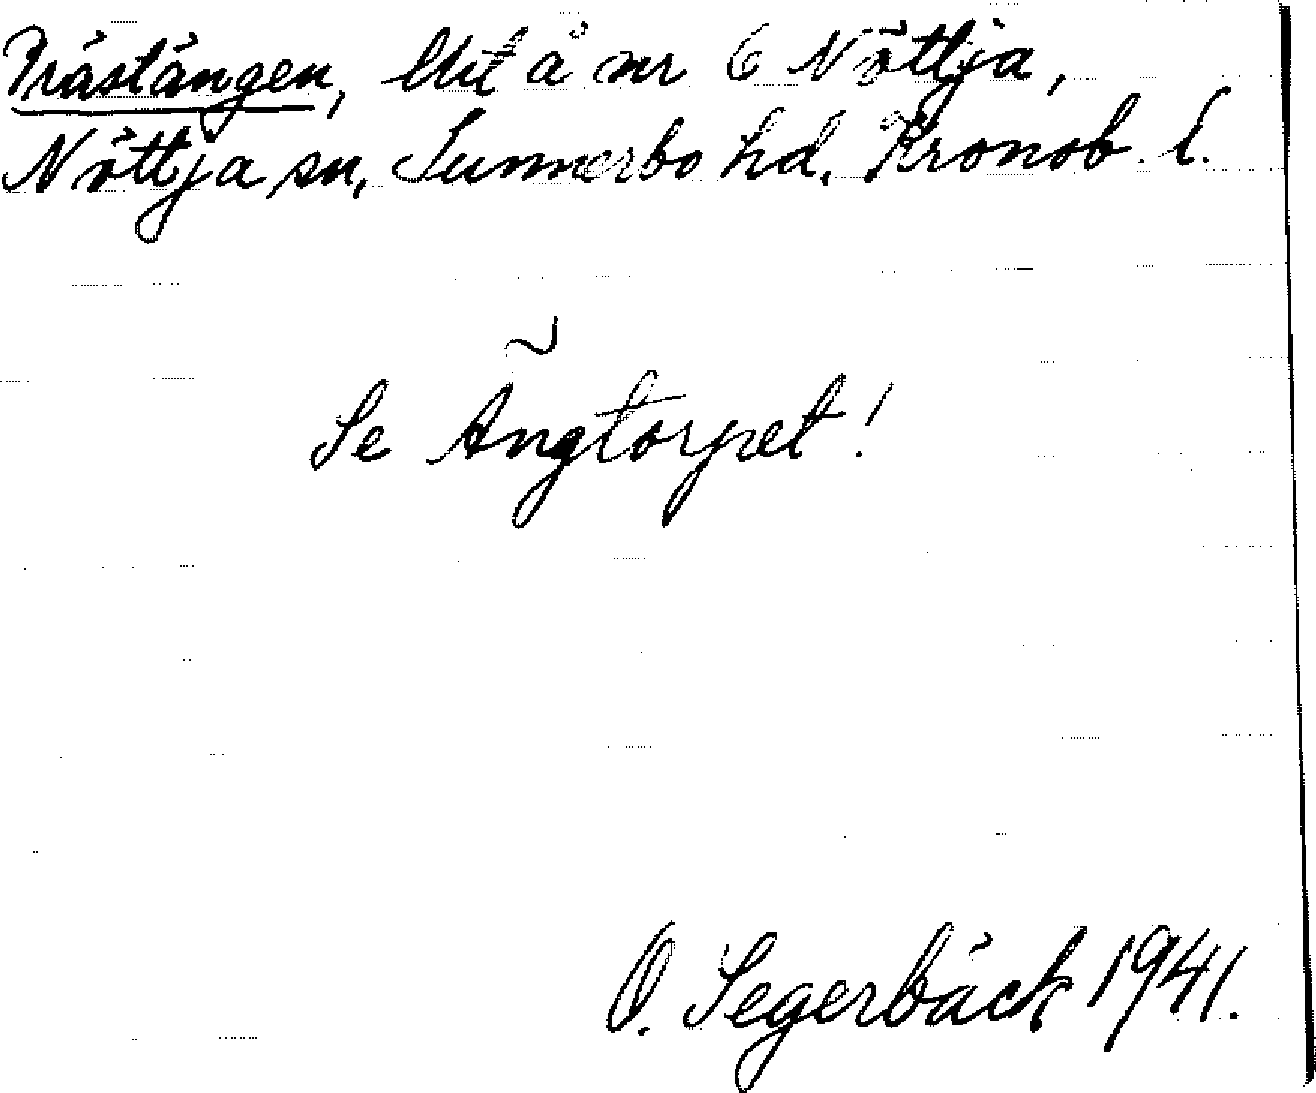 Prästängen, Utä å nr 6 Nöttja,
Nöttja sn, Sunnerbo hd. Kronob. l.
Se Ängtorpet!
O. Segerbäck 1941.